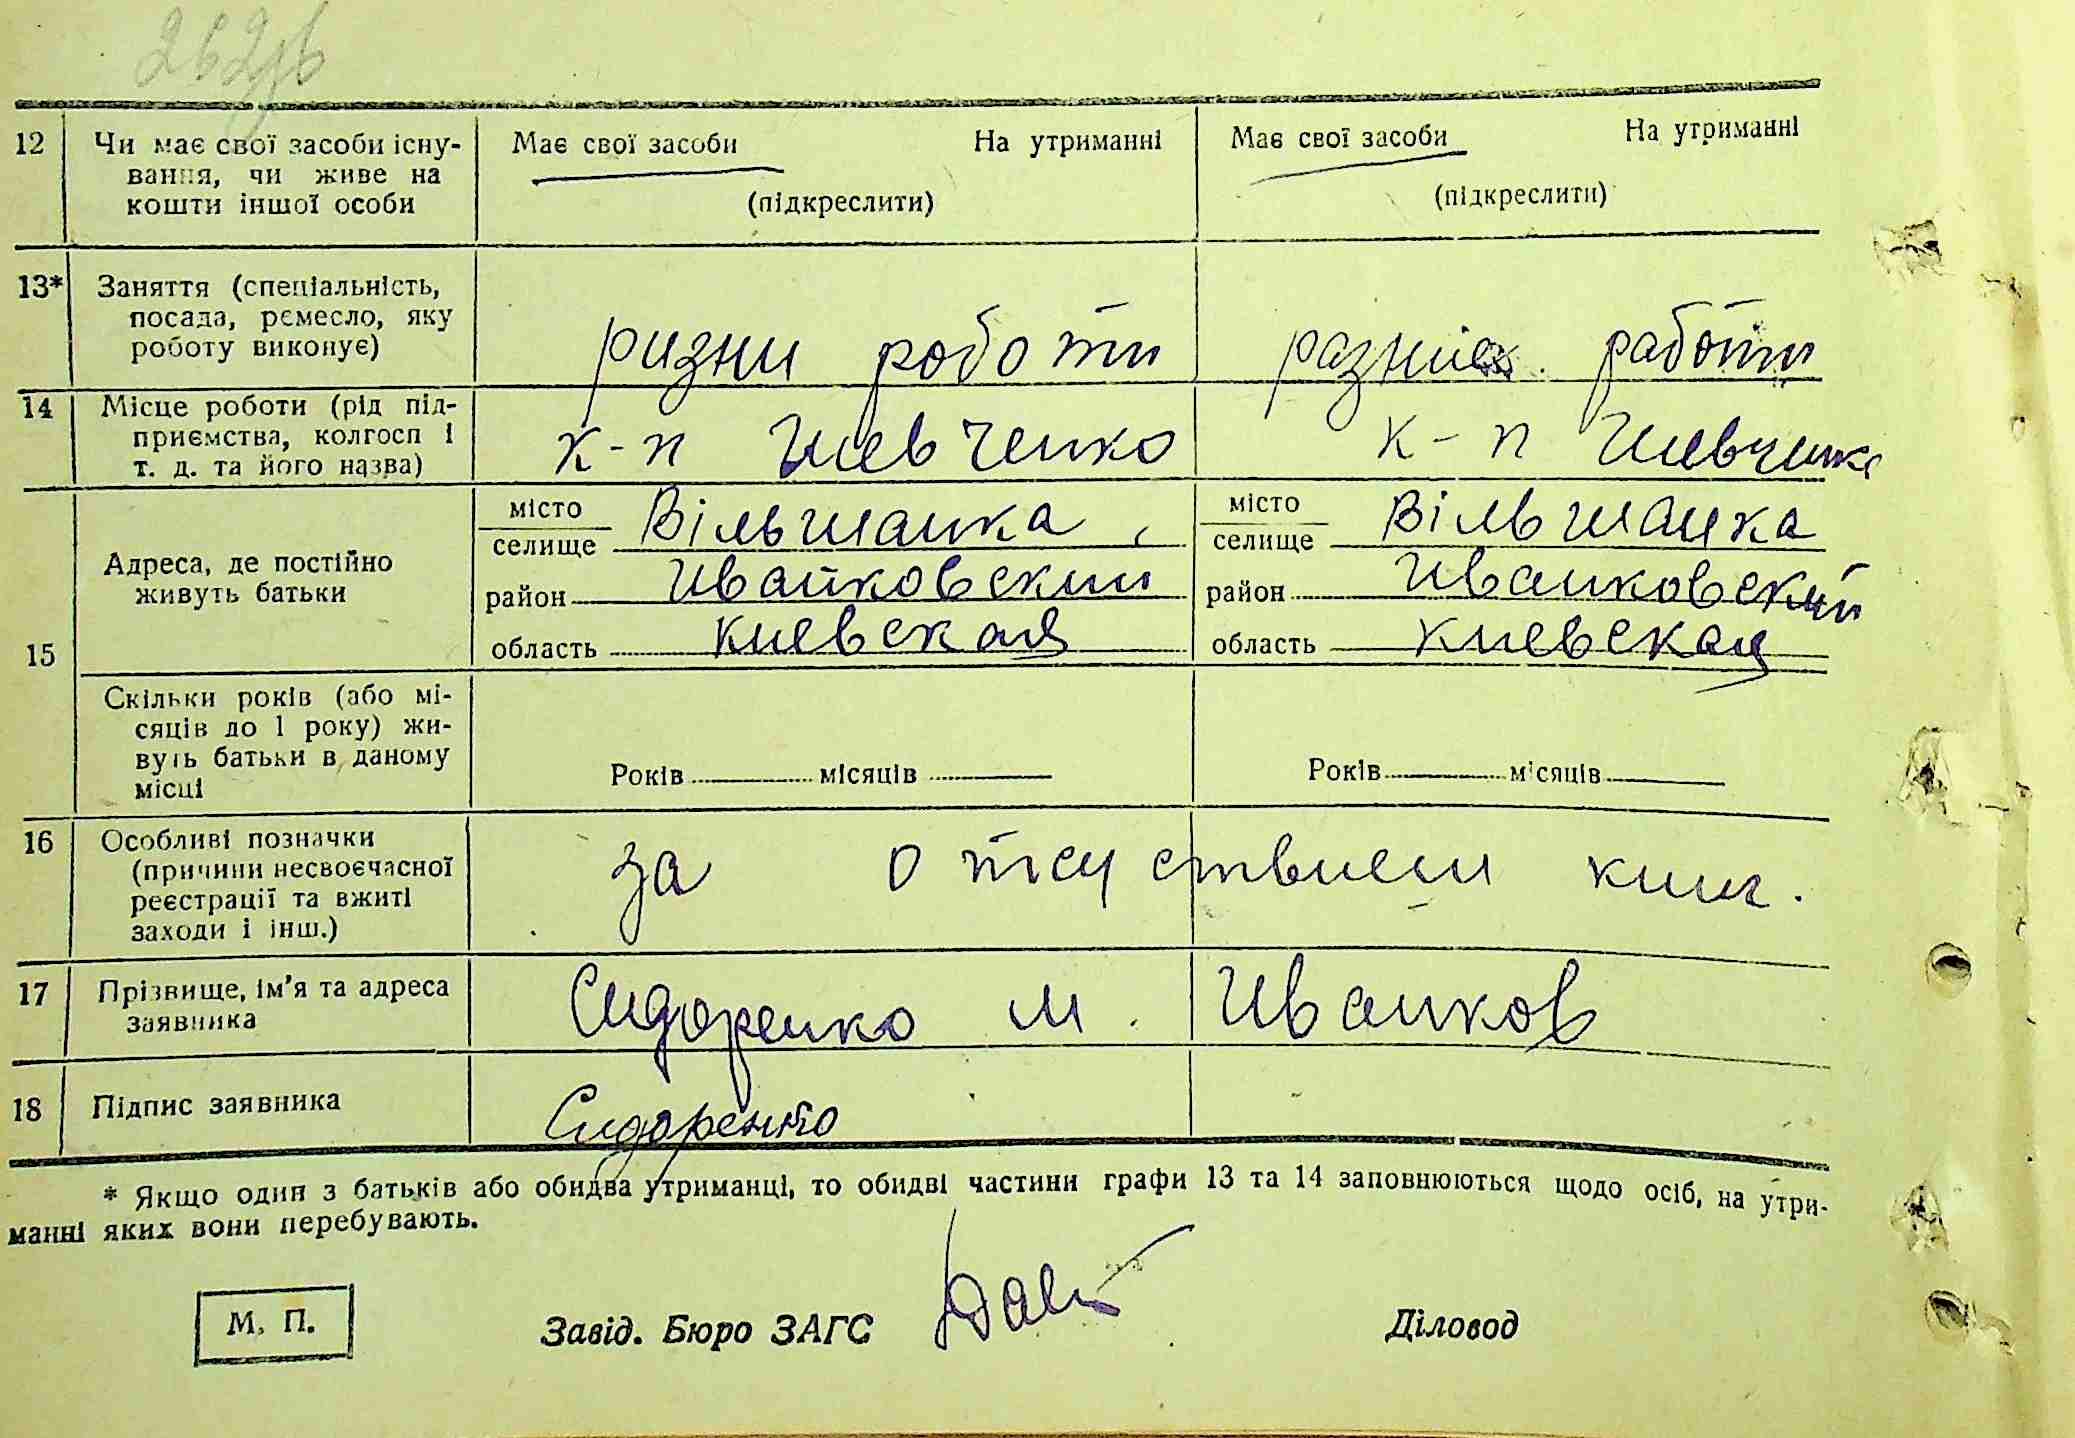 12 Чи має свої засоби існу- Має свої засоби На утриманні Має свої засоби На утриманні
вання, чи живе на
кошти іншої особи (підкреслити) (підкреслити)
13* Заняття (спеціальність,
посада, ремесло, яку ризни роботи разние работи
роботу виконує)
14 Місце роботи (рід під-
приємства, колгосп і к-п Шевченко к-п Шевченко
т. д. та його назва)
місто Вільшанка, місто Вільшанка
селище селище
Адреса, де постійно
живуть батьки район Иванковский район Иванковский
15 область киевская область киевская
Скільки років (або мі-
сяців до 1 року) жи-
вуть батьки в даному Років місяців Років місяців
місці
16 Особливі позначки
(причини несвоєчасної за отсуствием книг.
реєстрації та вжиті
заходи і інш.)
17 Прізвище, ім'я та адреса Сидоренко М. Иванков
заявника
18 Підпис заявника Сидоренко
* Якщо один з батьків або обидва утриманці, то обидві частини графи 13 та 14 заповнюються щодо осіб, на утри-
манні яких вони перебувають.
М. П. Завід. Бюро ЗАГС Діловод